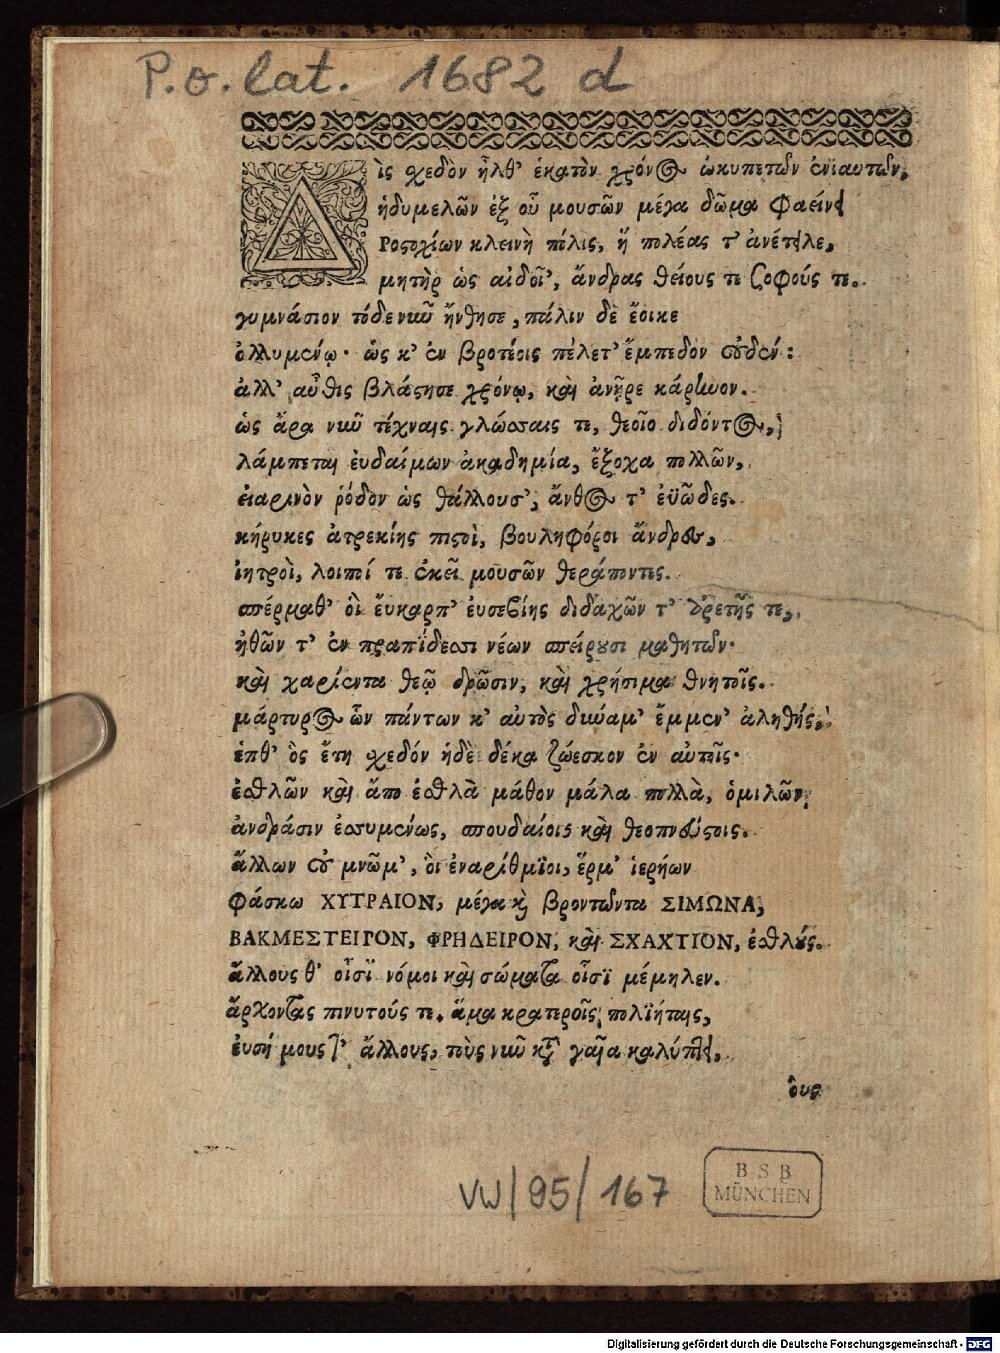 P.o.lat. 1682 d
Δὶς σχεδὸν ἦλθ' ἑκατὸν χρόνος ὠκυπετῶν ἐνιαυτῶν,
ἡδυμελῶν ἐξ οὗ μουσῶν μέγα δῶμα φαείνει
Ροστοχίων κλεινὴ πόλις, ἣ πολέας τ' ἀνέτειλε,
μητὴρ ὡς αἰδοῖ', ἄνδρας θείους τε σοφούς τε.
γυμνάσιον τόδε νιῦ ἤνθησε, πάλιν δὲ ἔοικε
ὀλλυμένῳ· ὡς κ' ἐν βροτέοις πέλετ' ἔμπεδον οὐδέν:
ἀλλ' αὖθις βλάστησε χρόνῳ, καὶ ἀνῆρε κάρηνον.
ὡς ἄρα νῦν τέχναις γλώσσαις τε, θεοῖο διδόντος,
λάμπεται ἐυδαίμων ἀκαδημία, ἔξοχα πολλῶν,
εἰαρινὸν ῥόδον ὡς θάλλουσ', ἄνθος τ' ἐϋῶδες.
κήρυκες ἀτρεκίης πιστοὶ, βουληφόροι ἄνδρες,
ἰητροὶ, λοιποί τε ἐκεῖ μουσῶν θεράποντες.
σπέρμαθ' οἳ ἔυκαρπ' ἐυσεβίης διδαχῶν τ' ἀρετῆς τε,
ἠθῶν τ' ἐν πραπίδεσσι νέων σπείρουσι μαθητῶν·
καὶ χαρίεντα θεῷ δρῶσιν, καὶ χρήσιμα θνητοῖς.
μάρτυρος ὧν πάντων κ' αὐτὸς δύναμ' ἔμμεν' ἀληθής,
ἑπθ' ὃς ἔτη σχεδόν ἠδὲ δέκα ζώεσκον ἐν αὐτοῖς·
ἐσθλῶν καὶ ἄπο ἐσθλὰ μάθον μάλα πολλὰ, ὁμιλῶν
ἀνδράσιν ἐσσυμένως, σπουδαίοις καὶ θεοπνεύστοις.
ἄλλων οὐ μνῶμ', οἳ ἐναρίθμϊοι, ἕρμ' ἱερήων
φάσκω ΧΥΤΡΑΙΟΝ, μέγα καὶ βροντῶντα ΣΙΜΩΝΑ,
ΒΑΚΜΕΣΤΕΙΡΟΝ, ΦΡΗΔΕΙΡΟΝ, καὶ ΣΧΑΧΤΙΟΝ, ἐσθλούς.
ἄλλους θ' οἷσϊ νόμοι καὶ σώματα οἷσϊ μέμηλεν.
ἄρχοντας πινυτούς τε. ἅμα κρατεροῖς πολϊήταις,
ἐυσήμους τ' ἄλλους, τοὺς νῦν κατὰ γαῖα καλύπτει,
οὓς
VW/95/167
BSB
MÜNCHEN
Digitalisierung gefördert durch die Deutsche Forschungsgemeinschaft - DFG